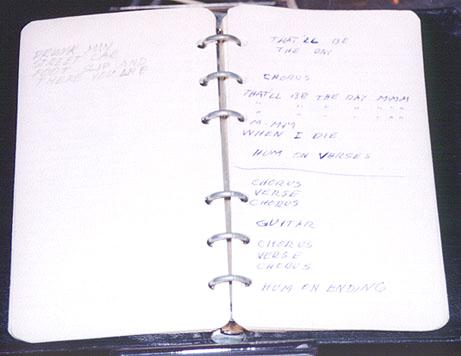 DRUNK MAN
STREET CAR
FOOT SLIP AND
THERE YOU LIE
THAT'LL BE
THE DAY
CHORUS
THAT'LL BE THE DAY MMM
" " " " " " "
" " " " " " "
M-MM
WHEN I DIE
HUM ON VERSES
CHORUS
VERSE
CHORUS
GUITAR
CHORUS
VERSE
CHORUS
HUM ON ENDING